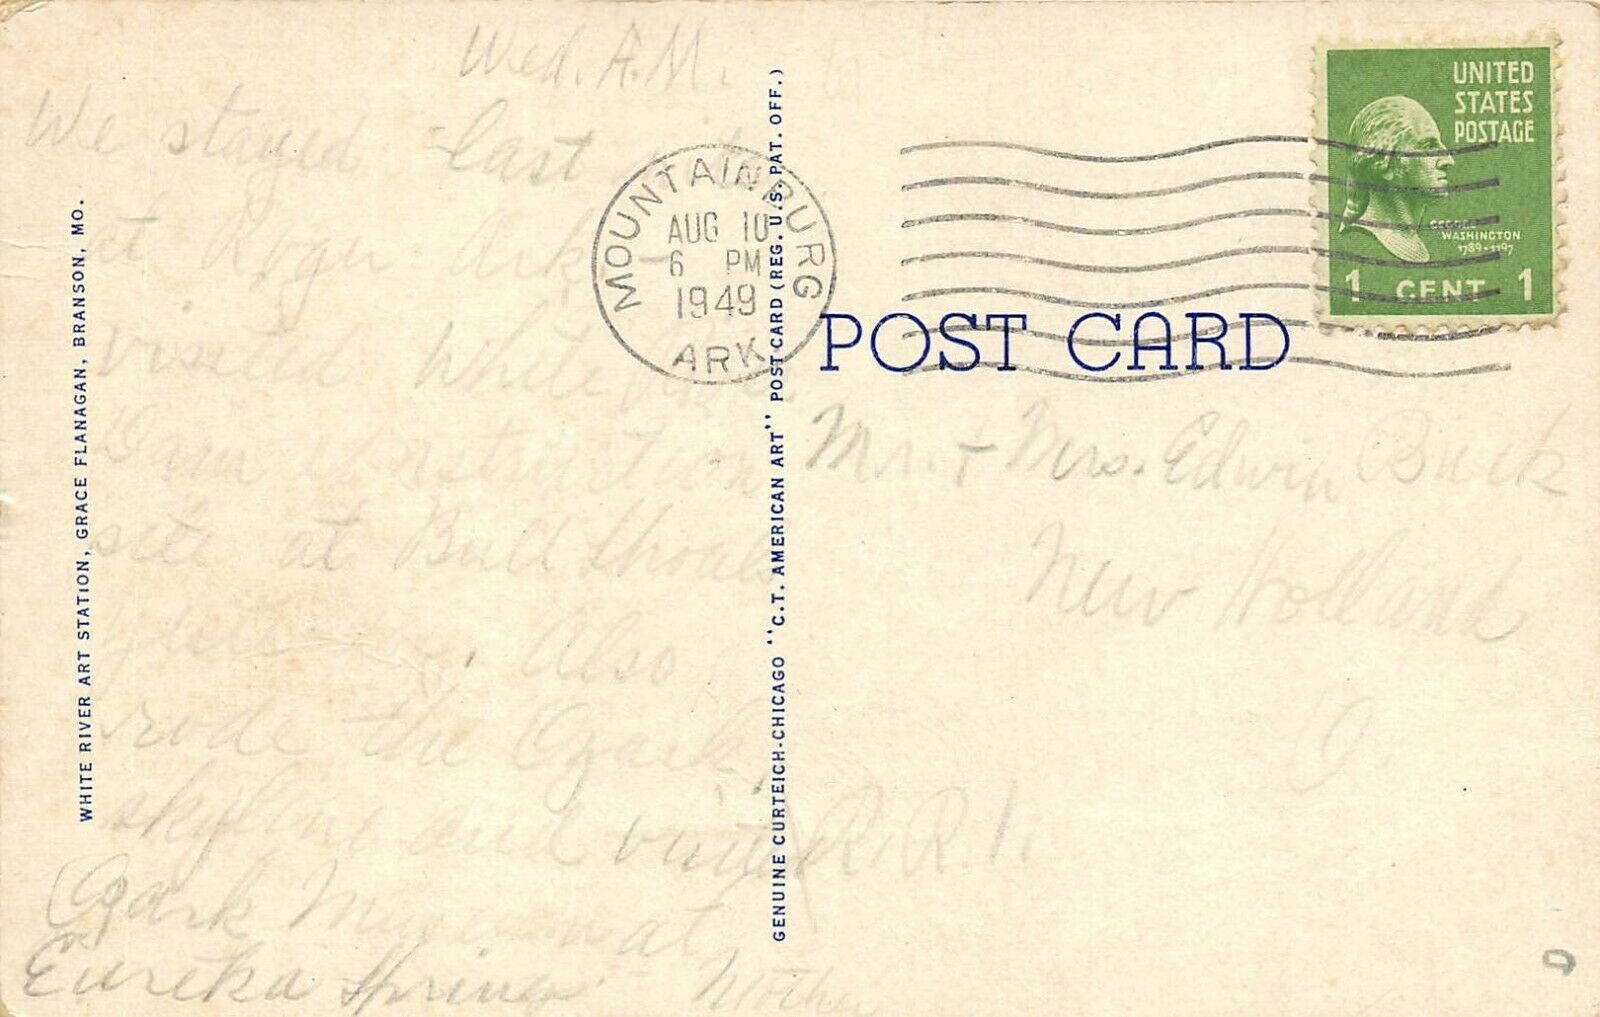 Wed. A.M.
We stayed last
at Roger Ark -
visited White River
Dam construction
site at Bull Shoals
yesterday. Also
rode the Ozark
skyline and visited
Ozark Museum at
Eureka Springs
Mother
WHITE RIVER ART STATION, GRACE FLANAGAN, BRANSON, MO.
GENUINE CURTEICH-CHICAGO "C.T. AMERICAN ART" POST CARD (REG. U.S. PAT. OFF.)
MOUNTAINBURG
AUG 10
6 PM
1949
ARK.
UNITED
STATES
POSTAGE
GEORGE
WASHINGTON
1789-1797
1 CENT 1
POST CARD
Mr. + Mrs. Edwin Buck
New Holland
O.
R.R.1.